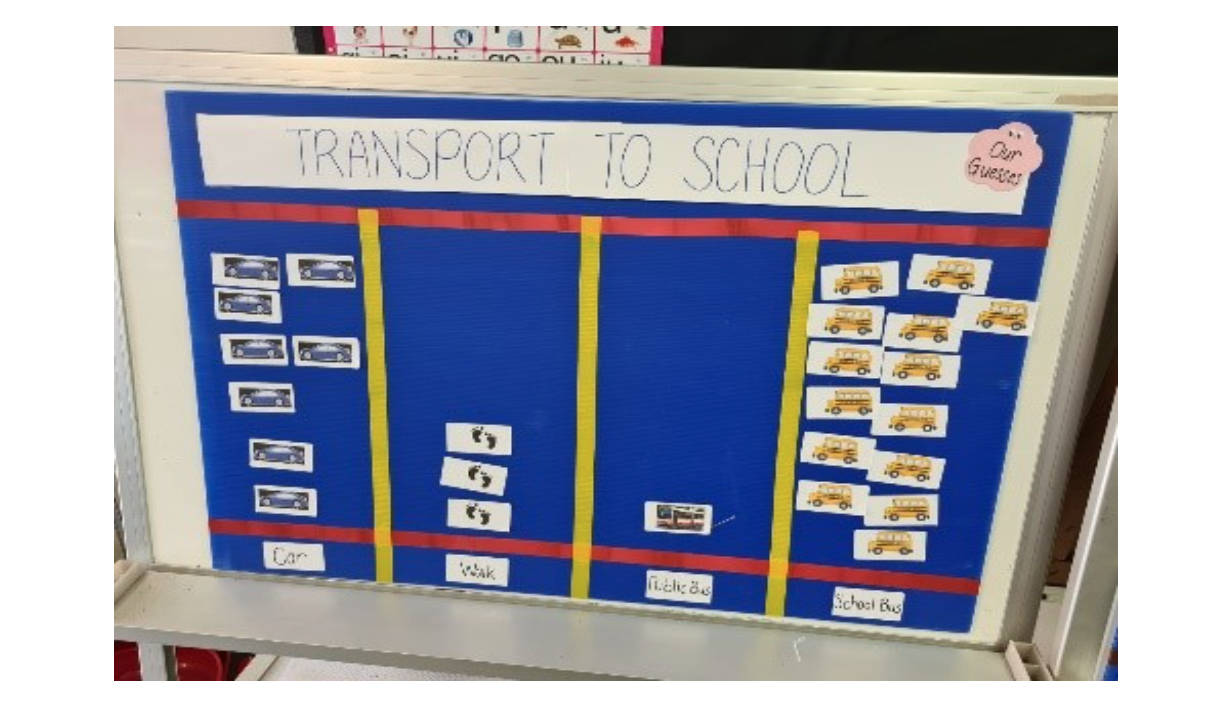 TRANSPORT TO SCHOOL
Our
Guesses
Car
Walk
Public Bus
School Bus